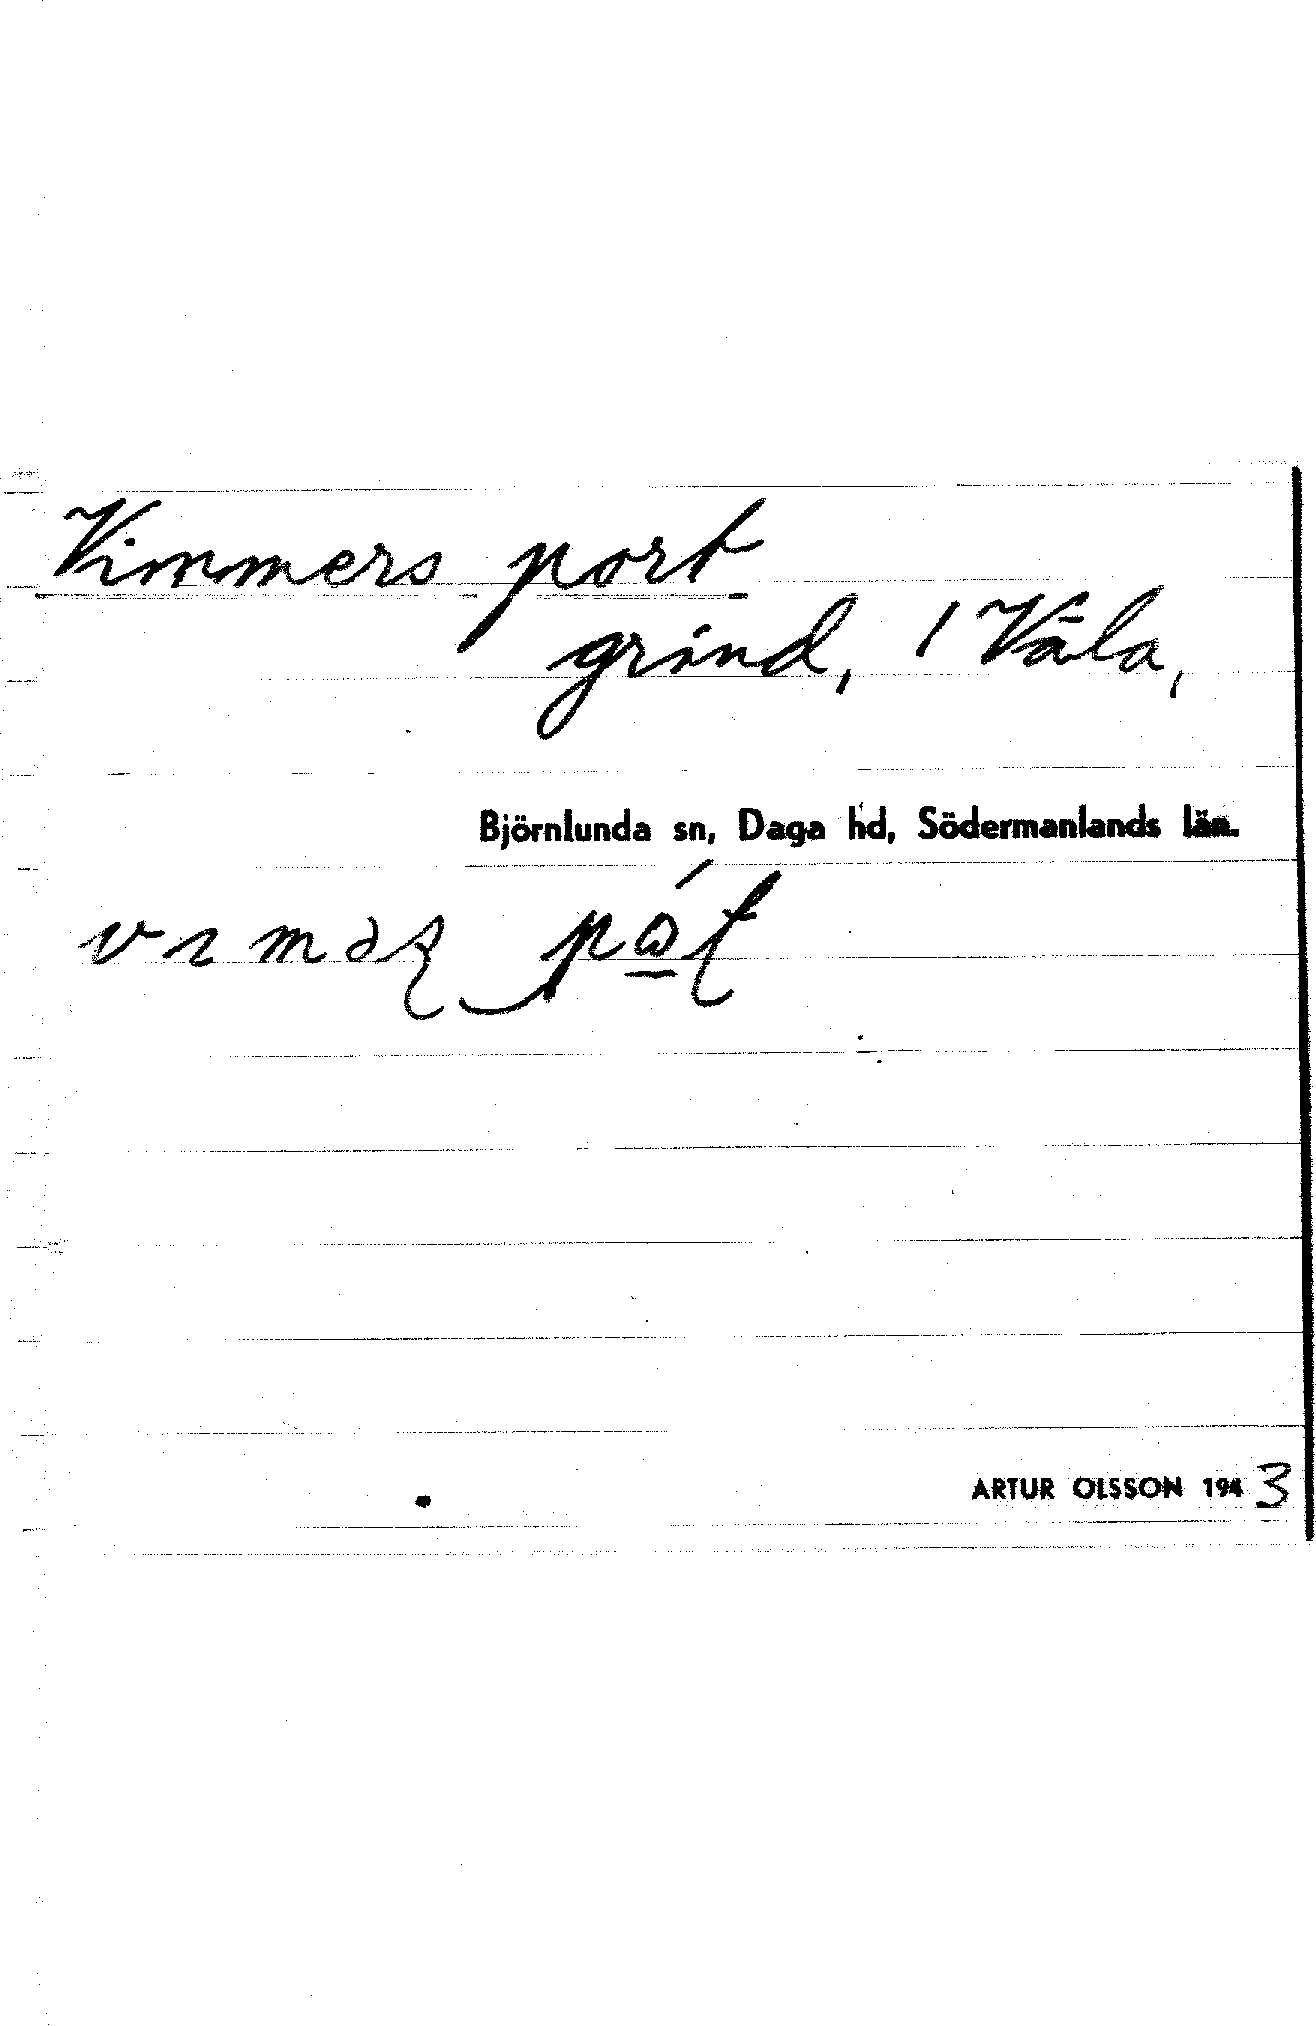 Vimmers port
grind, 1 Våla,
Björnlunda sn, Daga hd, Södermanlands län.
ARTUR OLSSON 1943